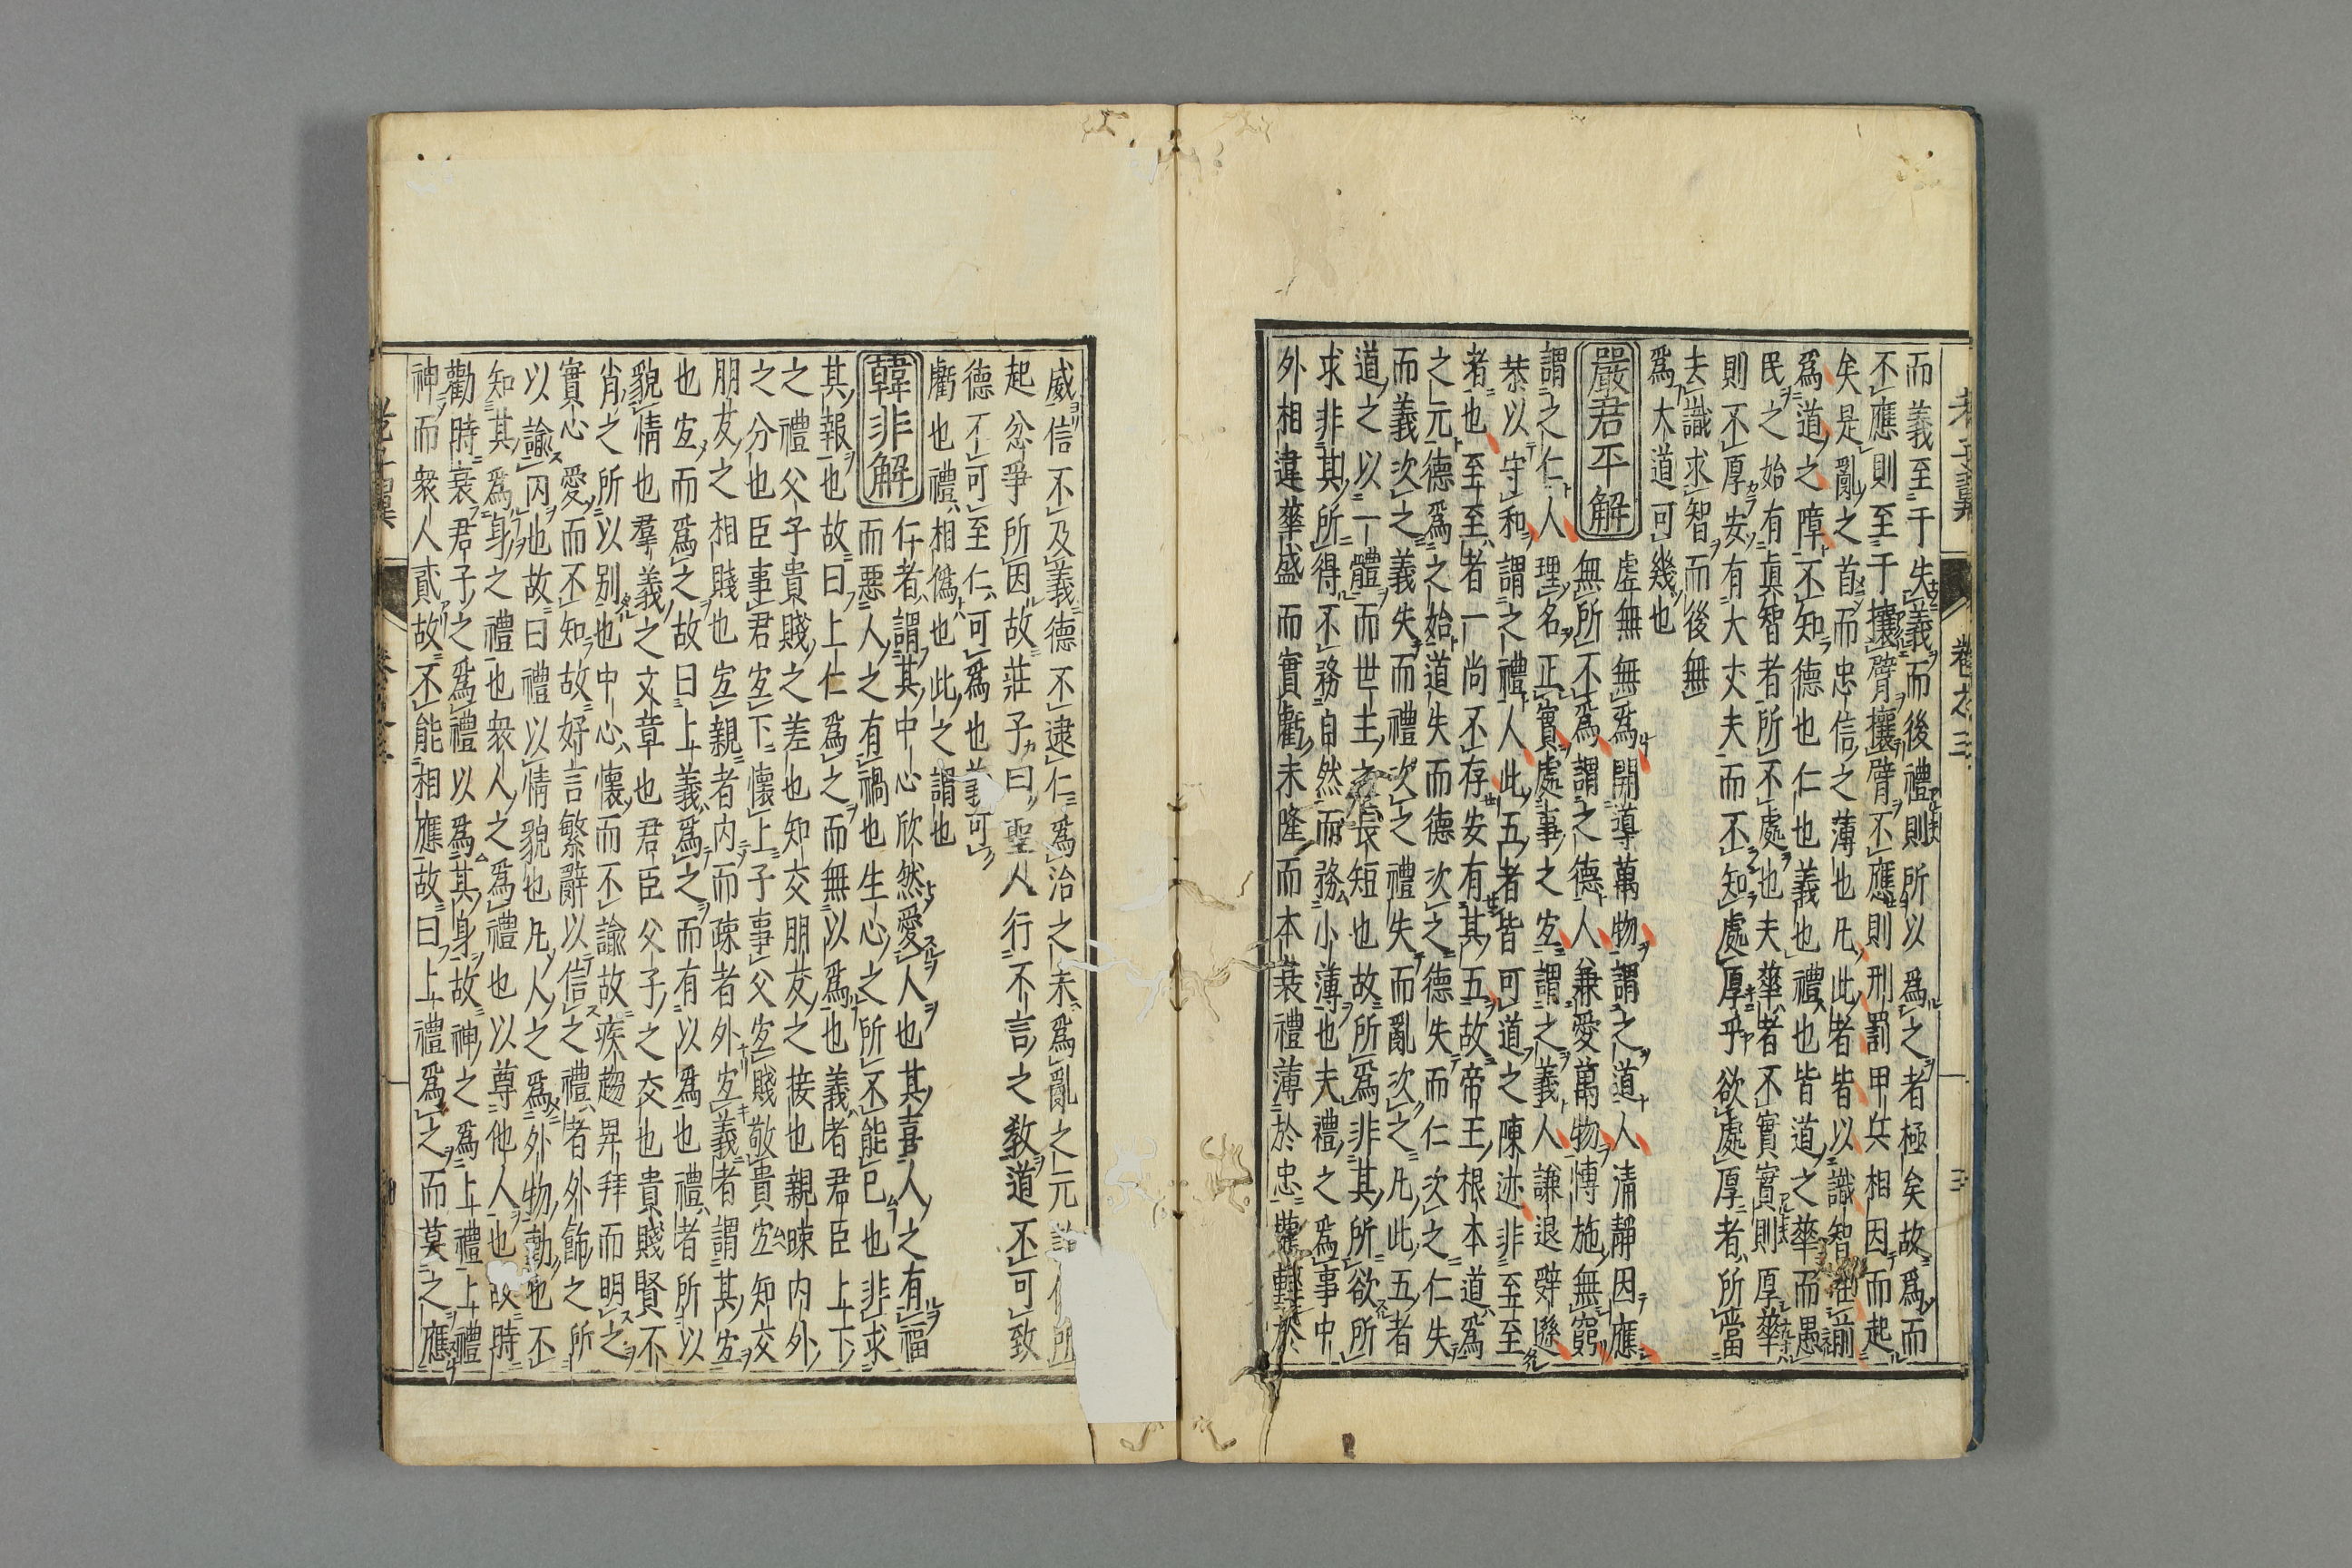 老子翼 卷之三
而義至于失義而後禮則所以爲之者極矣故爲而
不應則至于攘臂攘臂不應則刑罰甲兵相因而起
矣是亂之首而忠信之薄也凡此者皆以識智
爲道之障不知德也仁也義也禮也皆道之華而愚
民之始有眞智者所不處也夫華者不實實則厚華
則不厚安有大丈夫而不知處厚乎欲處厚者所當
去識求智而後無
爲大道可幾也
嚴君平解
虛無無爲開導萬物謂之道人清靜因應
無所不爲謂之德人兼愛萬物博施無窮
謂之仁人理名正實處事之宜謂之義人謙退辭遜
恭以守和謂之禮人此五者皆可道之陳迹非至至
者也至至者一尚不存安有其五故帝王根本道爲
之元德爲之始道失而德次之德失而仁次之仁失
而義次之義失而禮次之禮失而亂次之凡此五者
道之以一體而世主之長短也故所爲非其所欲所
求非其所得不務自然而務小薄也夫禮之爲事中
外相違華盛而實虧末隆而本衰禮薄於忠權輕於
威信不及義德不逮仁爲治之末爲亂之元
起忿爭所因故莊子曰聖人行不言之敎道不可致
德不可至仁可爲也義可
虧也禮相僞也此之謂也
韓非解
仁者謂其中心欣然愛人也其喜人之有福
而惡人之有禍也生心之所不能已也非求
其報也故曰上仁爲之而無以爲也義者君臣上下
之禮父子貴賤之差也知交朋友之接也親疎内外
之分也臣事君宜下懷上子事父宜賤敬貴宜知交
朋友之相賤也宜親者内而疎者外宜義者謂其宜
也宜而爲之故曰上義爲之而有以爲也禮者所以
貌情也羣義之文章也君臣父子之交也貴賤賢不
肖之所以別也中心懷而不諭故疾趨卑拜而明之
實心愛而不知故好言繁辭以信之禮者外飾之所
以諭内也故曰禮以情貌也凡人之爲外物動也不
知其爲身之禮也衆人之爲禮也以尊他人也故時
勸時衰君子之爲禮以爲其身故神之爲上禮上禮
神而衆人貳故不能相應故曰上禮爲之而莫之應